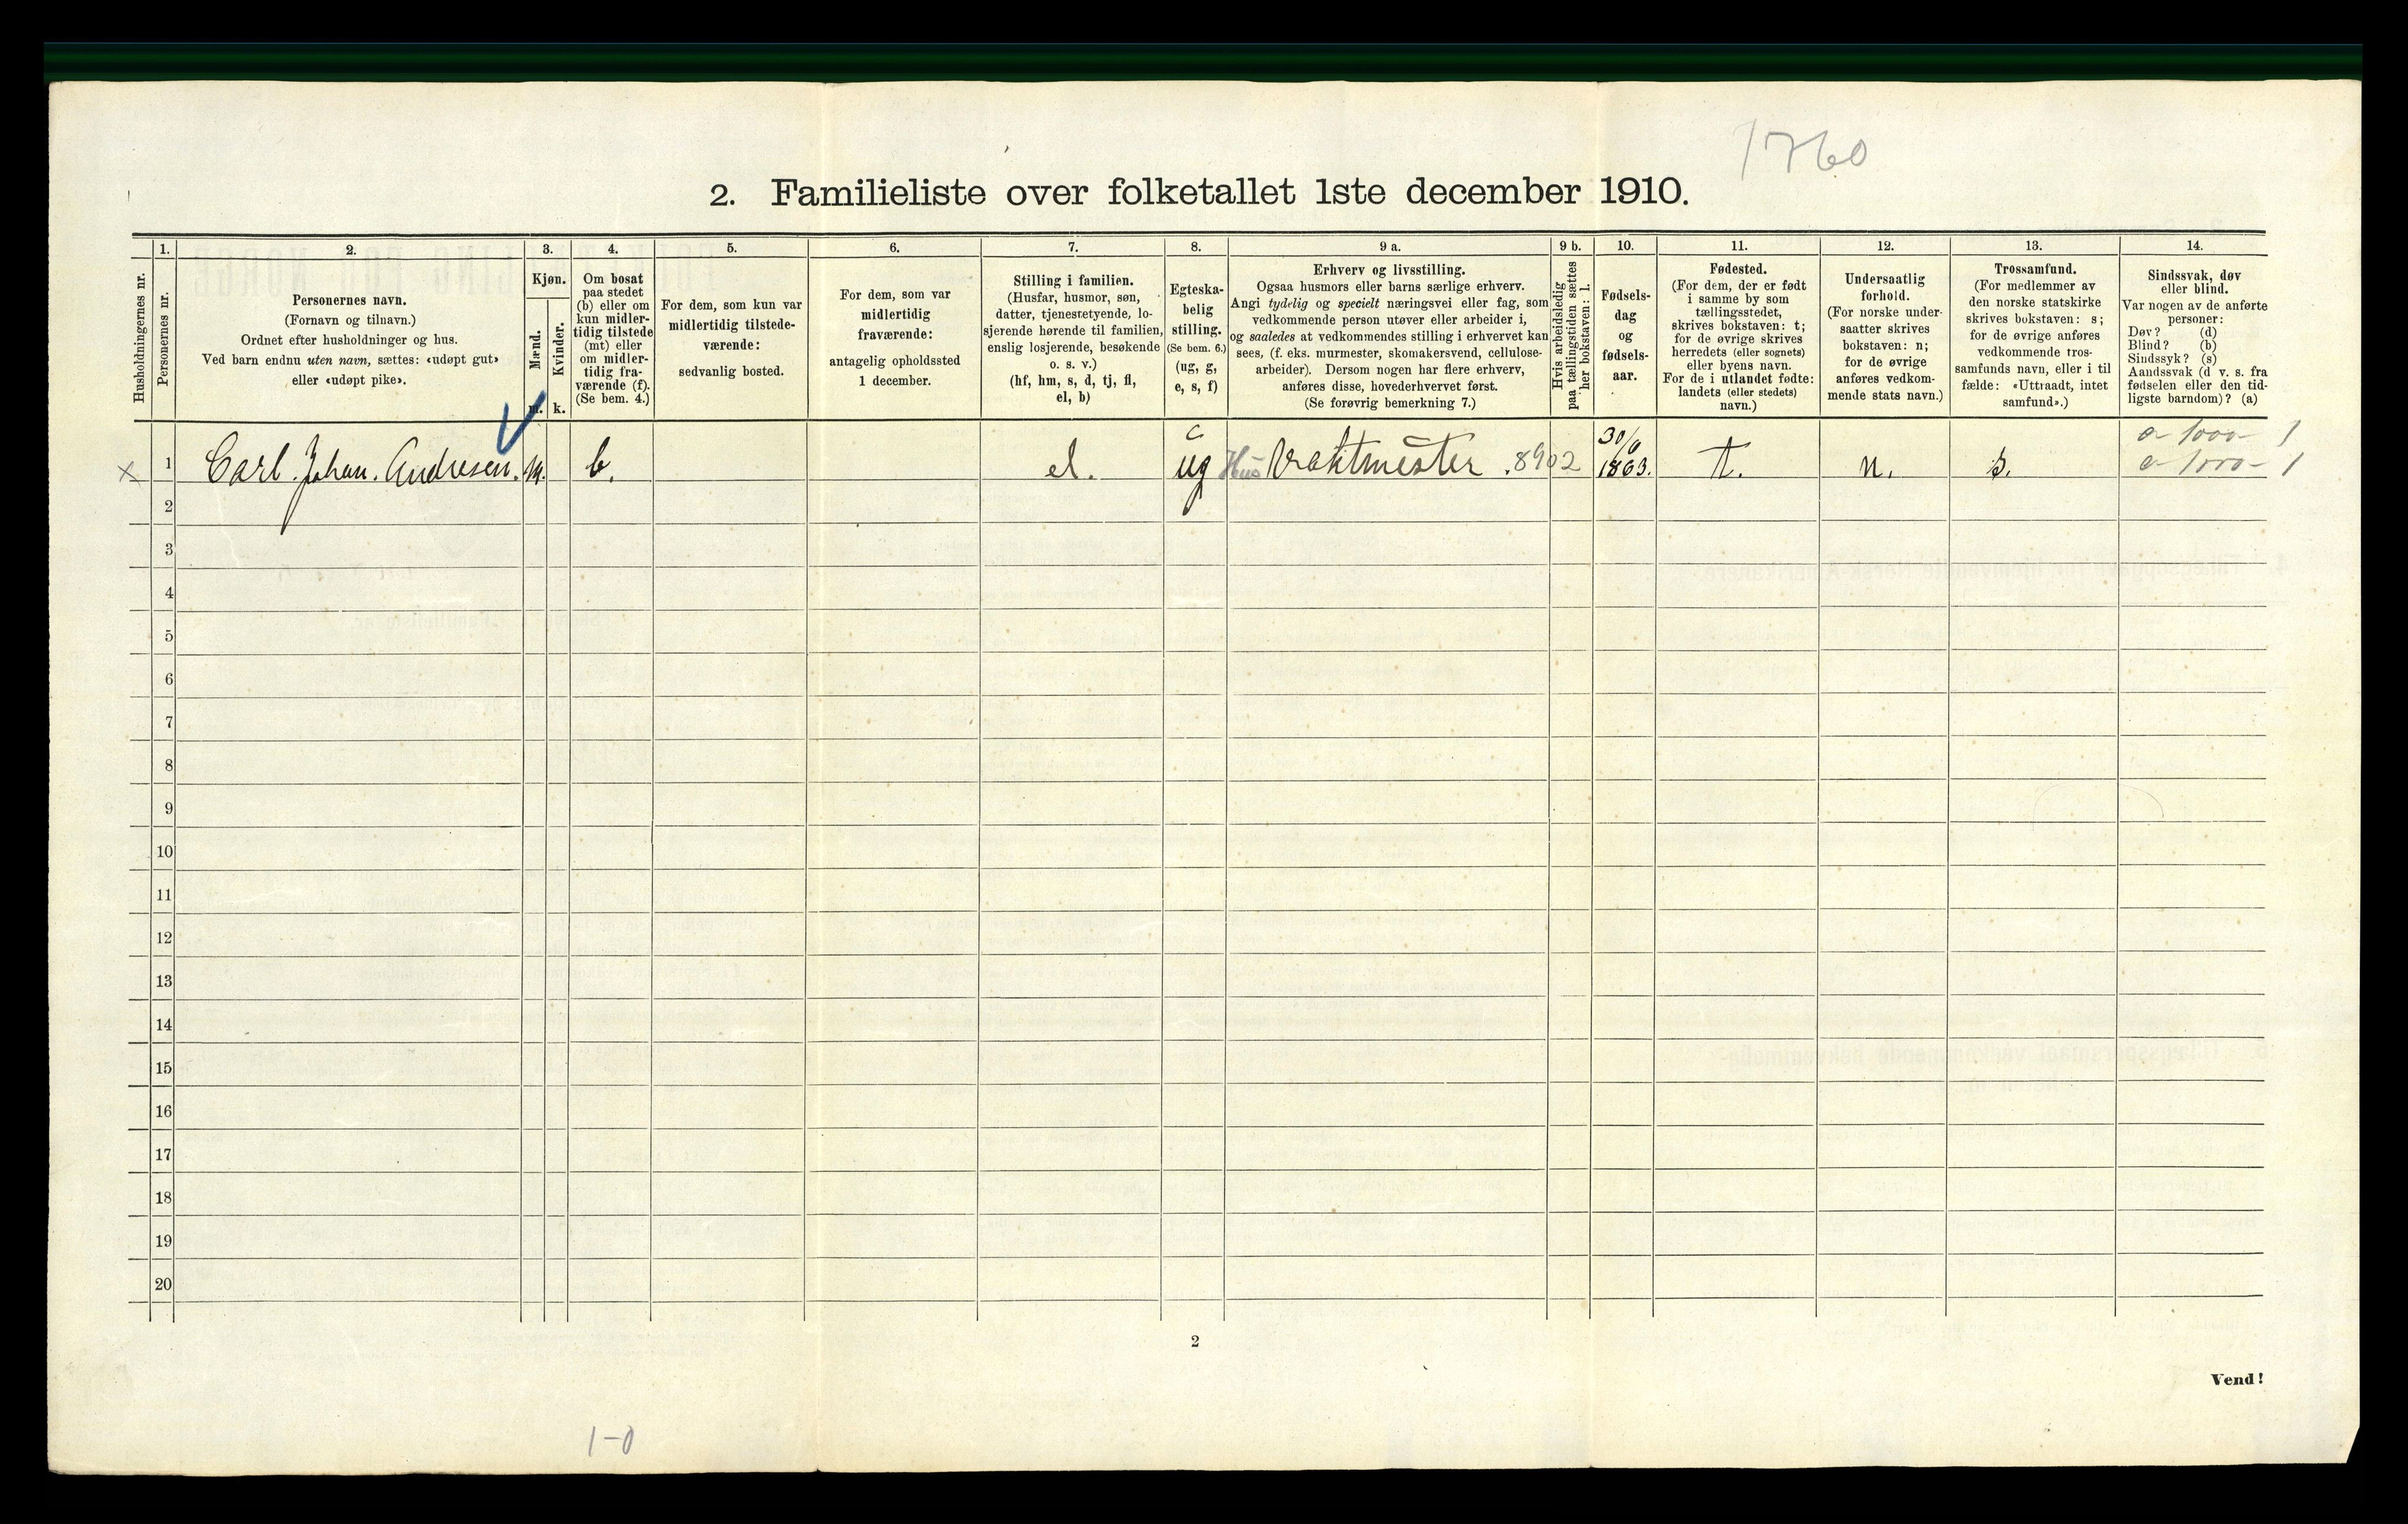 1760
2. Familieliste over folketallet 1ste december 1910.
Husholdningernes nr.
1.
Personernes nr.
2.
Personernes navn.
(Fornavn og tilnavn.)
Ordnet efter husholdninger og hus.
Ved barn endnu uten navn, sættes: «udøpt gut»
eller «udøpt pike».
3.
Kjøn.
Mænd.
Kvinder.
m. k.
4.
Om bosat
paa stedet
(b) eller om
kun midler-
tidig tilstede
(mt) eller
om midler-
tidig fra-
værende (f).
(Se bem. 4.)
5.
For dem, som kun var
midlertidig tilstede-
værende:
sedvanlig bosted.
6.
For dem, som var
midlertidig
fraværende:
antagelig opholdssted
1 december.
7.
Stilling i familien.
(Husfar, husmor, søn,
datter, tjenestetyende, lo-
sjerende hørende til familien,
enslig losjerende, besøkende
o. s. v.)
(hf, hm, s, d, tj, fl,
el, b)
8.
Egteska-
belig
stilling.
(Se bem. 6.)
(ug, g,
e, s, f)
9 a.
Erhverv og livsstilling.
Ogsaa husmors eller barns særlige erhverv.
Angi tydelig og specielt næringsvei eller fag, som
vedkommende person utøver eller arbeider i,
og saaledes at vedkommendes stilling i erhvervet kan
sees, (f. eks. murmester, skomakersvend, cellulose-
arbeider). Dersom nogen har flere erhverv,
anføres disse, hovederhvervet først.
(Se forøvrig bemerkning 7.)
9 b.
Hvis arbeidsledig
paa tællingstiden sættes
her bokstaven: l.
10.
Fødsels-
dag
og
fødsels-
aar.
11.
Fødested.
(For dem, der er født
i samme by som
tællingsstedet,
skrives bokstaven: t;
for de øvrige skrives
herredets (eller sognets)
eller byens navn.
For de i utlandet fødte:
landets (eller stedets)
navn.)
12.
Undersaatlig
forhold.
(For norske under-
saatter skrives
bokstaven: n;
for de øvrige
anføres vedkom-
mende stats navn.)
13.
Trossamfund.
(For medlemmer av
den norske statskirke
skrives bokstaven: s;
for de øvrige anføres
vedkommende tros-
samfunds navn, eller i til
fælde: «Uttraadt, intet
samfund».)
14.
Sindssvak, døv
eller blind.
Var nogen av de anførte
personer:
Døv? (d)
Blind? (b)
Sindssyk? (s)
Aandssvak (d v. s. fra
fødselen eller den tid-
ligste barndom)? (a)
1 Carl. Johan. Andresen. m. b. el. ug Hus Vaktmester .8902 30/9 1863. t. n. s. a-1000- 1
a-1000- 1
2
3
4
5
6
7
8
9
10
11
12
13
14
15
16
17
18
19
20
2
Vend!
1-0